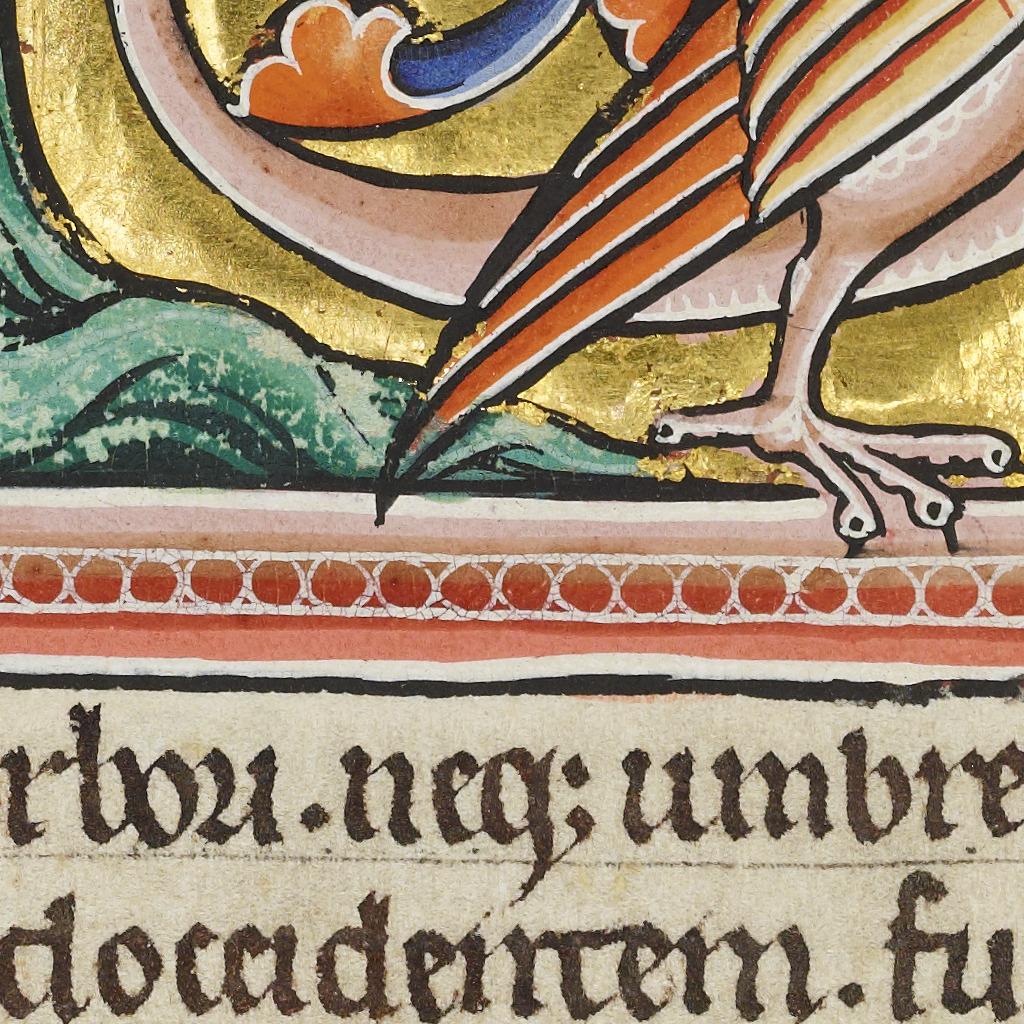 rbori . neq; umbre
d occidentem . fu